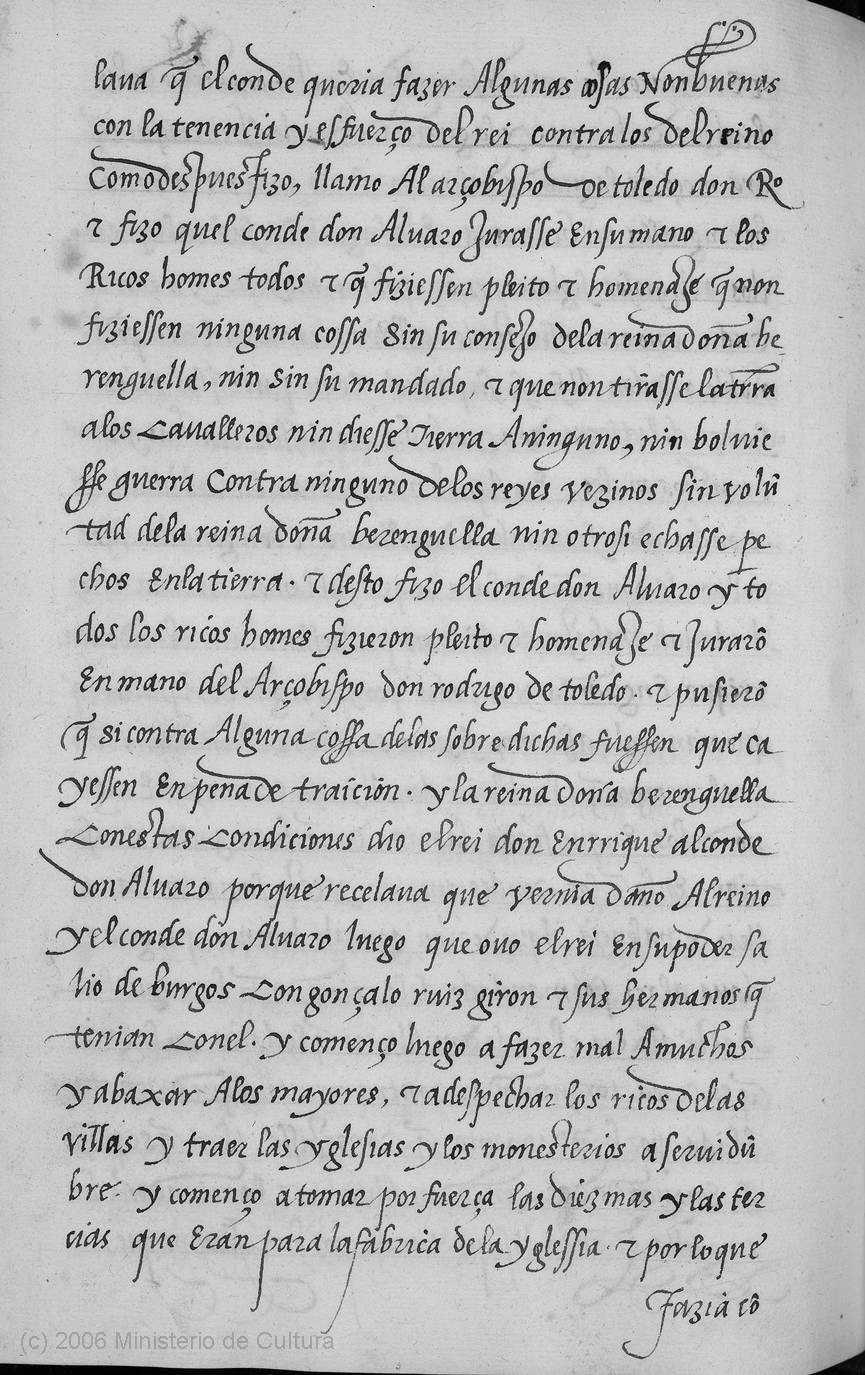 laua q̃ el conde queria fazer Algunas cosas Non buenas
con la tenencia y esfuerço del rei contra los del reino
Como despues fizo, llamo Al arçobispo de toledo don Rº
τ fizo quel conde don Alvaro Jurasse En su mano τ los
Ricos homes todos τ q̃ fiziessen pleito τ homenaje q̃ non
fiziessen ninguna cossa Sin su consejo de la reina doña be
renguella, nin Sin su mandado, τ que non tirasse la trr̃a
a los Cavalleros nin diesse Tierra A ninguno, nin bolvie
sse guerra Contra ninguno de los reyes vezinos sin volũ
tad de la reina doña berenguella nin otrosi echasse pe
chos En la tierra. τ desto fizo el conde don Alvaro y to
dos los ricos homes fizieron pleito τ homenaje τ Jurarõ
En mano del Arçobispo don rodrigo de toledo. τ pusierõ
q̃ si contra Alguna cossa de las sobre dichas fuessen que ca
yessen En pena de traicion. y la reina doña berenguella
Con estas Condiciones dio el rei don Enrrique al conde
don Alvaro porque recelava que vernia daño Al reino
y el conde don Alvaro luego que ovo el rei En su poder sa
lio de burgos Con gonçalo ruiz giron τ sus hermanos q̃
tenian Con el. y començo luego a fazer mal A muchos
y abaxar A los mayores, τ a despechar los ricos de las
villas y traer las yglesias y los monesterios a servidũ
bre. y començo a tomar por fuerça las diezmas y las ter
cias que Eran para la fabrica de la yglessia. τ por lo que
Fazia cõ
(c) 2006 Ministerio de Cultura